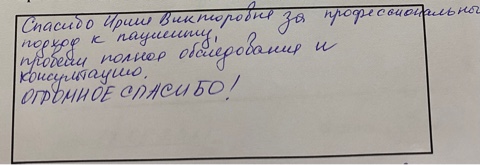 Спасибо Ирине Викторовне за профессиональны
подход к пациенту,
провели полное обследование и
консультацию.
ОГРОМНОЕ СПАСИБО!